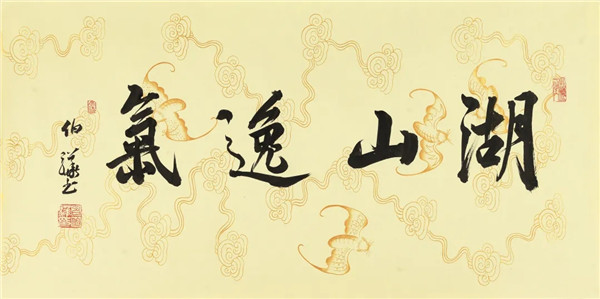 湖山逸氣
伯 书